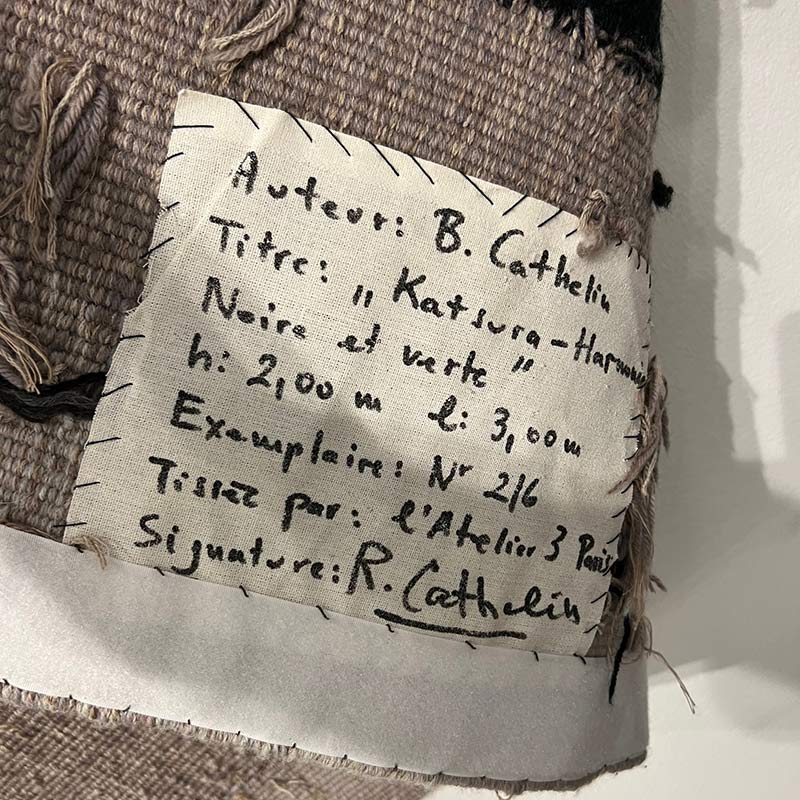 Auteur: B. Cathelin
Titre: "Katsura-Harmonie
Noire et verte"
h: 2,00 m l: 3,00 m
Exemplaire: Nr 2/6
Tissée par: l'Atelier 3 Paris
Signature: R. Cathelin